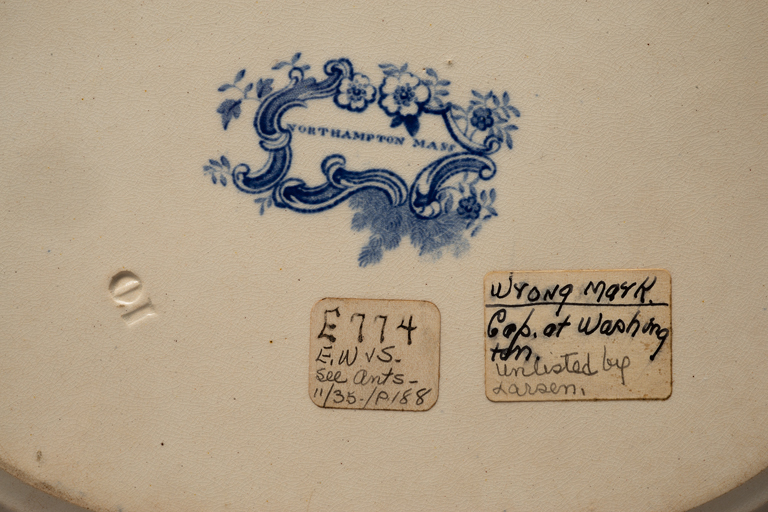 NORTHAMPTON MASS
10
E774
E.W vS.
See Ants-
11/35-/P.188
Wrong Mark.
Cap. at Washing
ton.
unlisted by
Larsen.